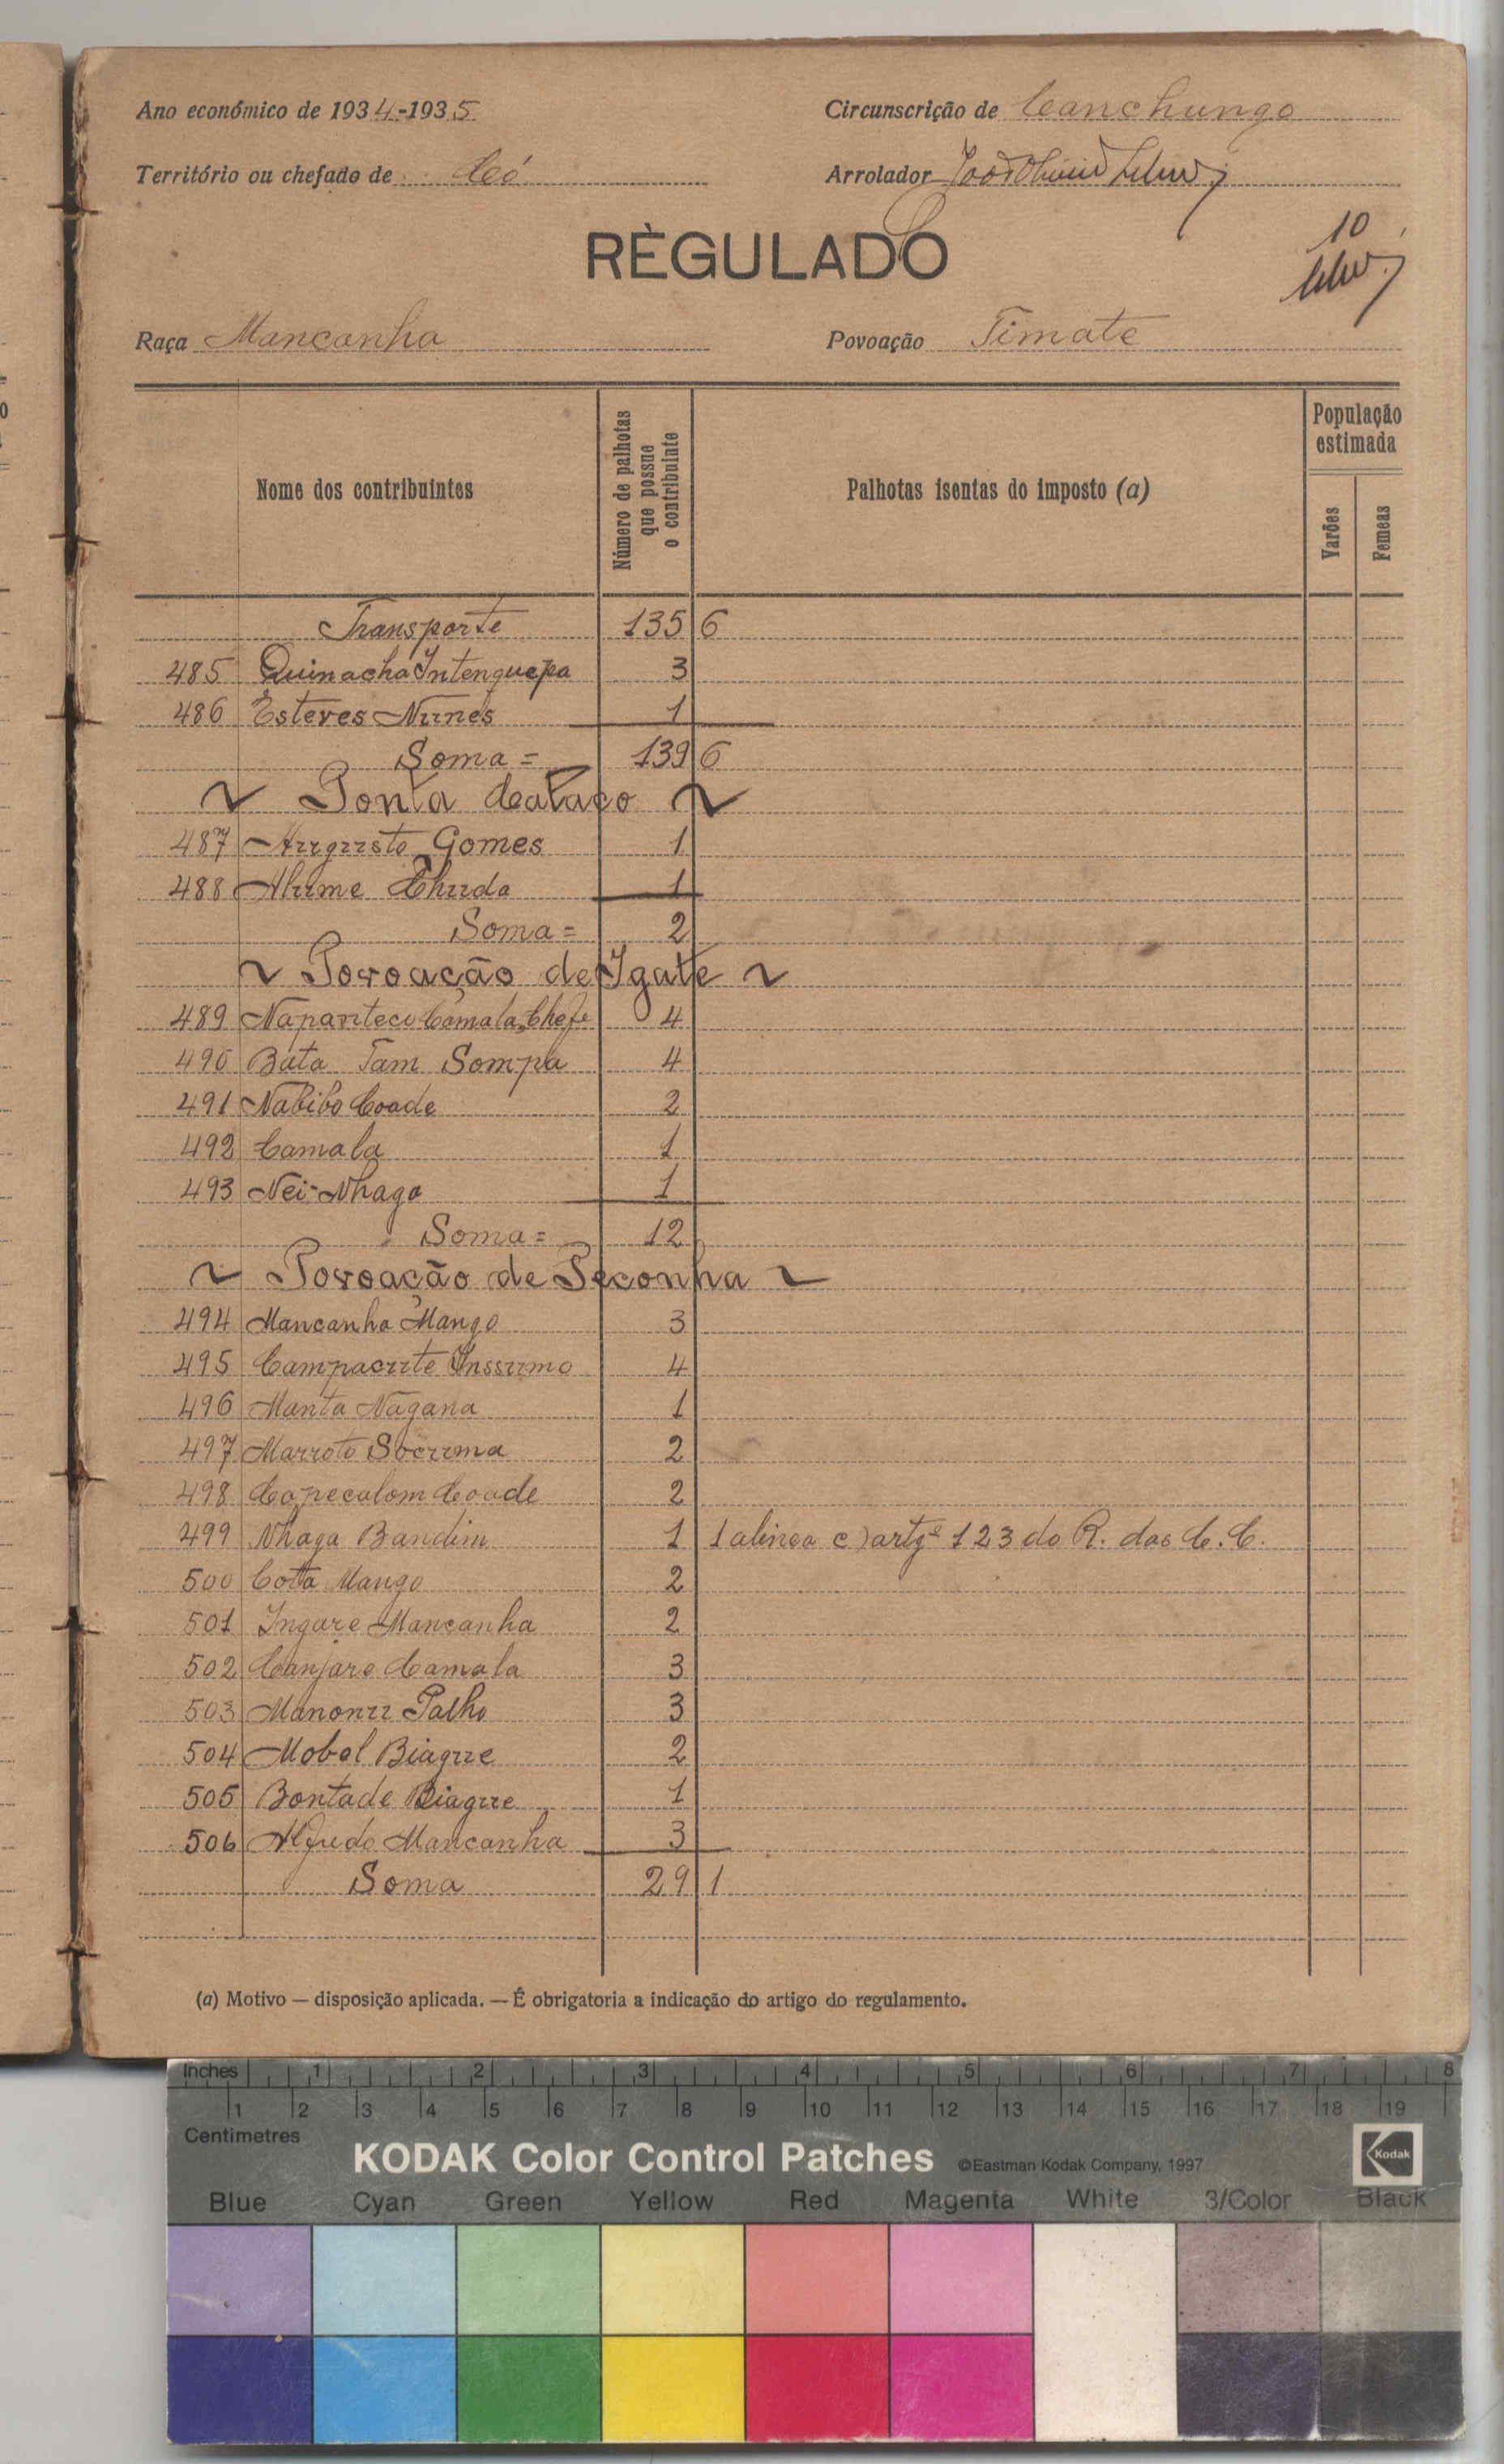 Ano económico de 1934-1935
Circunscrição de Canchungo
Território ou chefado de Có
Arrolador João
10
RÈGULADO
Raça Mancanha
Povoação Timate
Nome dos contribuintes
Número de palhotas que possue o contribuinte
Palhotas isentas do imposto (a)
População estimada
Varões
Femeas
Transporte 135 6
485 Quinacha Intenguepa 3
486 Esteves Nunes 1
Soma = 139 6
~ Ponta Calaco ~
487 Augusto Gomes 1
488 Alume Chuda 1
Soma = 2
~ Povoação de Igate ~
489 Camala, Chefe 4
490 Bata Tam Sompa 4
491 Nabibo Coade 2
492 Camala 1
493 Nei-Nhaga 1
Soma = 12
~ Povoação de Peconha ~
494 Mancanha Mango 3
495 Campacute Inssumo 4
496 Manta Nagana 1
497 Marroto Socuma 2
498 Capecalom Coade 2
499 Nhaga Bandim 1 1 alinea c) artgº 123 do R. das C. C.
500 Cotta Mango 2
501 Ingare Mancanha 2
502 Canjare Camala 3
503 Manonu Palho 3
504 Mobol Biague 2
505 Bontade Biague 1
506 Alfredo Mancanha 3
Soma 29 1
(a) Motivo — disposição aplicada. — É obrigatoria a indicação do artigo do regulamento.
Inches 1 2 3 4 5 6 7 8
1 2 3 4 5 6 7 8 9 10 11 12 13 14 15 16 17 18 19
Centimetres
KODAK Color Control Patches ©Eastman Kodak Company, 1997 Kodak
Blue Cyan Green Yellow Red Magenta White 3/Color Black